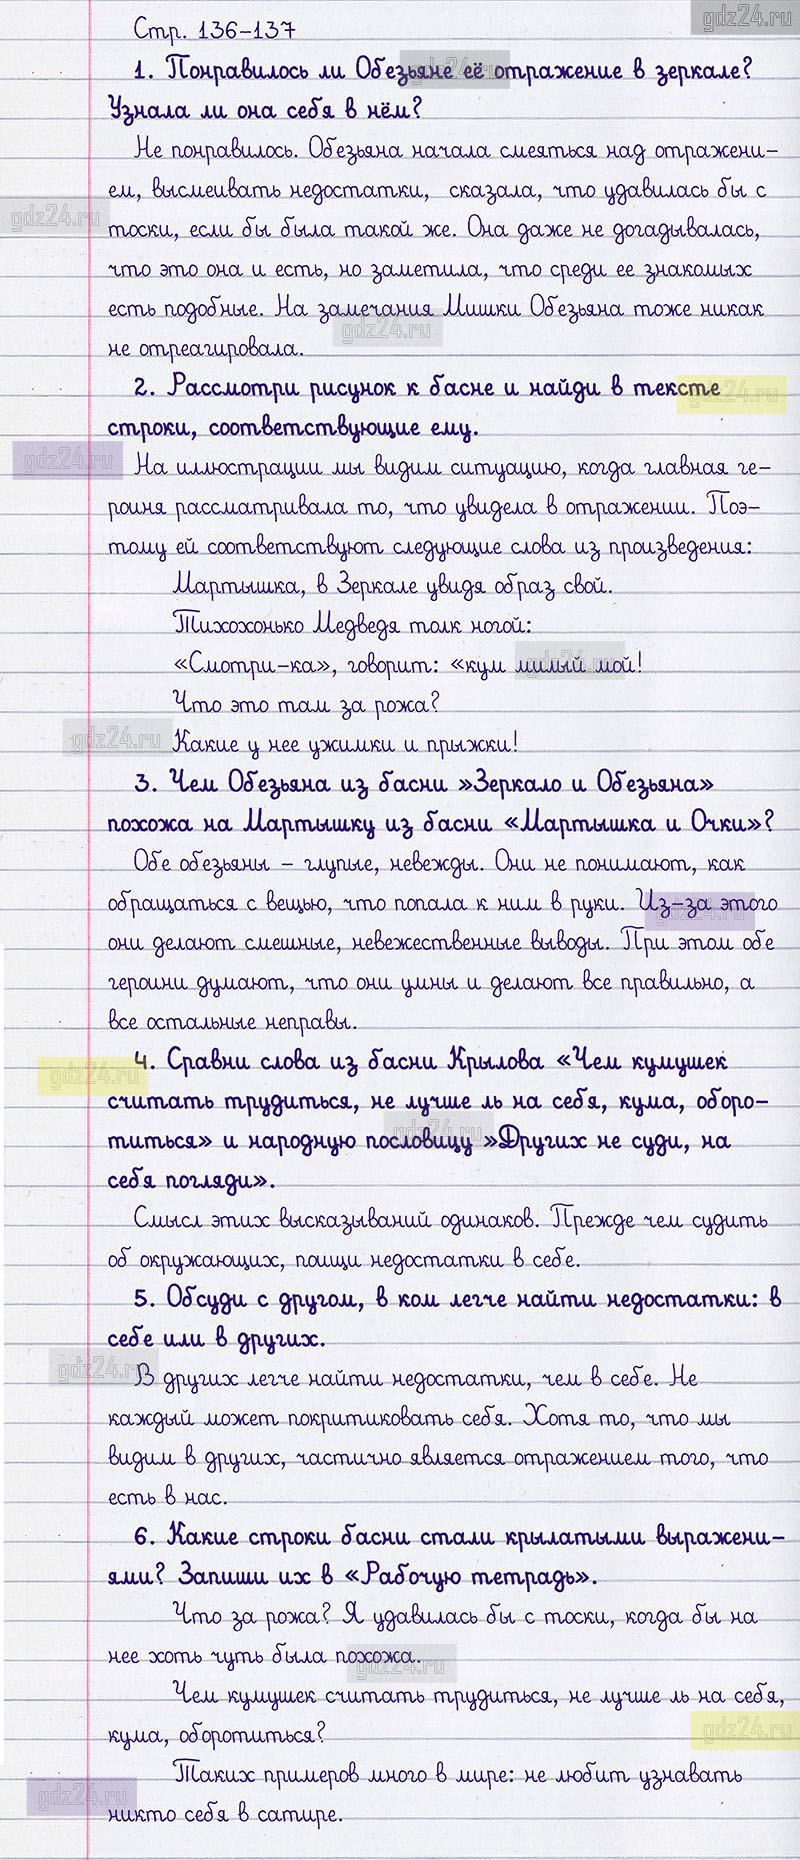 gdz24.ru
Стр. 136-137
1. Понравилось ли Обезьяне её отражение в зеркале?
gdz24.ru
Узнала ли она себя в нём?
Не понравилось. Обезьяна начала смеяться над отражени-
ем, высмеивать недостатки, сказала, что удавилась бы с
gdz24.ru
тоски, если бы была такой же. Она даже не догадывалась,
что это она и есть, но заметила, что среди ее знакомых
есть подобные. На замечания Мишки Обезьяна тоже никак
gdz24.ru
не отреагировала.
2. Рассмотри рисунок к басне и найди в тексте
gdz24.ru
строки, соответствующие ему.
gdz24.ru
На иллюстрации мы видим ситуацию, когда главная ге-
роиня рассматривала то, что увидела в отражении. Поэ-
тому ей соответствуют следующие слова из произведения:
Мартышка, в Зеркале увидя образ свой.
Тихохонько Медведя толк ногой:
«Смотри-ка», говорит: «кум милый мой!
gdz24.ru
Что это там за рожа?
gdz24.ru
Какие у нее ужимки и прыжки!
3. Чем Обезьяна из басни »Зеркало и Обезьяна»
похожа на Мартышку из басни «Мартышка и Очки»?
Обе обезьяны - глупые, невежды. Они не понимают, как
обращаться с вещью, что попала к ним в руки. Из-за этого
gdz24.ru
они делают смешные, невежественные выводы. При этом обе
героини думают, что они умны и делают все правильно, а
все остальные неправы.
4. Сравни слова из басни Крылова «Чем кумушек
gdz24.ru
считать трудиться, не лучше ль на себя, кума, оборо-
gdz24.ru
титься» и народную пословицу »Других не суди, на
себя погляди».
Смысл этих высказываний одинаков. Прежде чем судить
об окружающих, поищи недостатки в себе.
5. Обсуди с другом, в ком легче найти недостатки: в
себе или в других.
gdz24.ru
В других легче найти недостатки, чем в себе. Не
каждый может покритиковать себя. Хотя то, что мы
видим в других, частично является отражением того, что
есть в нас.
6. Какие строки басни стали крылатыми выражени-
ями? Запиши их в «Рабочую тетрадь».
Что за рожа? Я удавилась бы с тоски, когда бы на
нее хоть чуть была похожа.
gdz24.ru
Чем кумушек считать трудиться, не лучше ль на себя,
кума, оборотиться?
gdz24.ru
Таких примеров много в мире: не любит узнавать
gdz24.ru
никто себя в сатире.